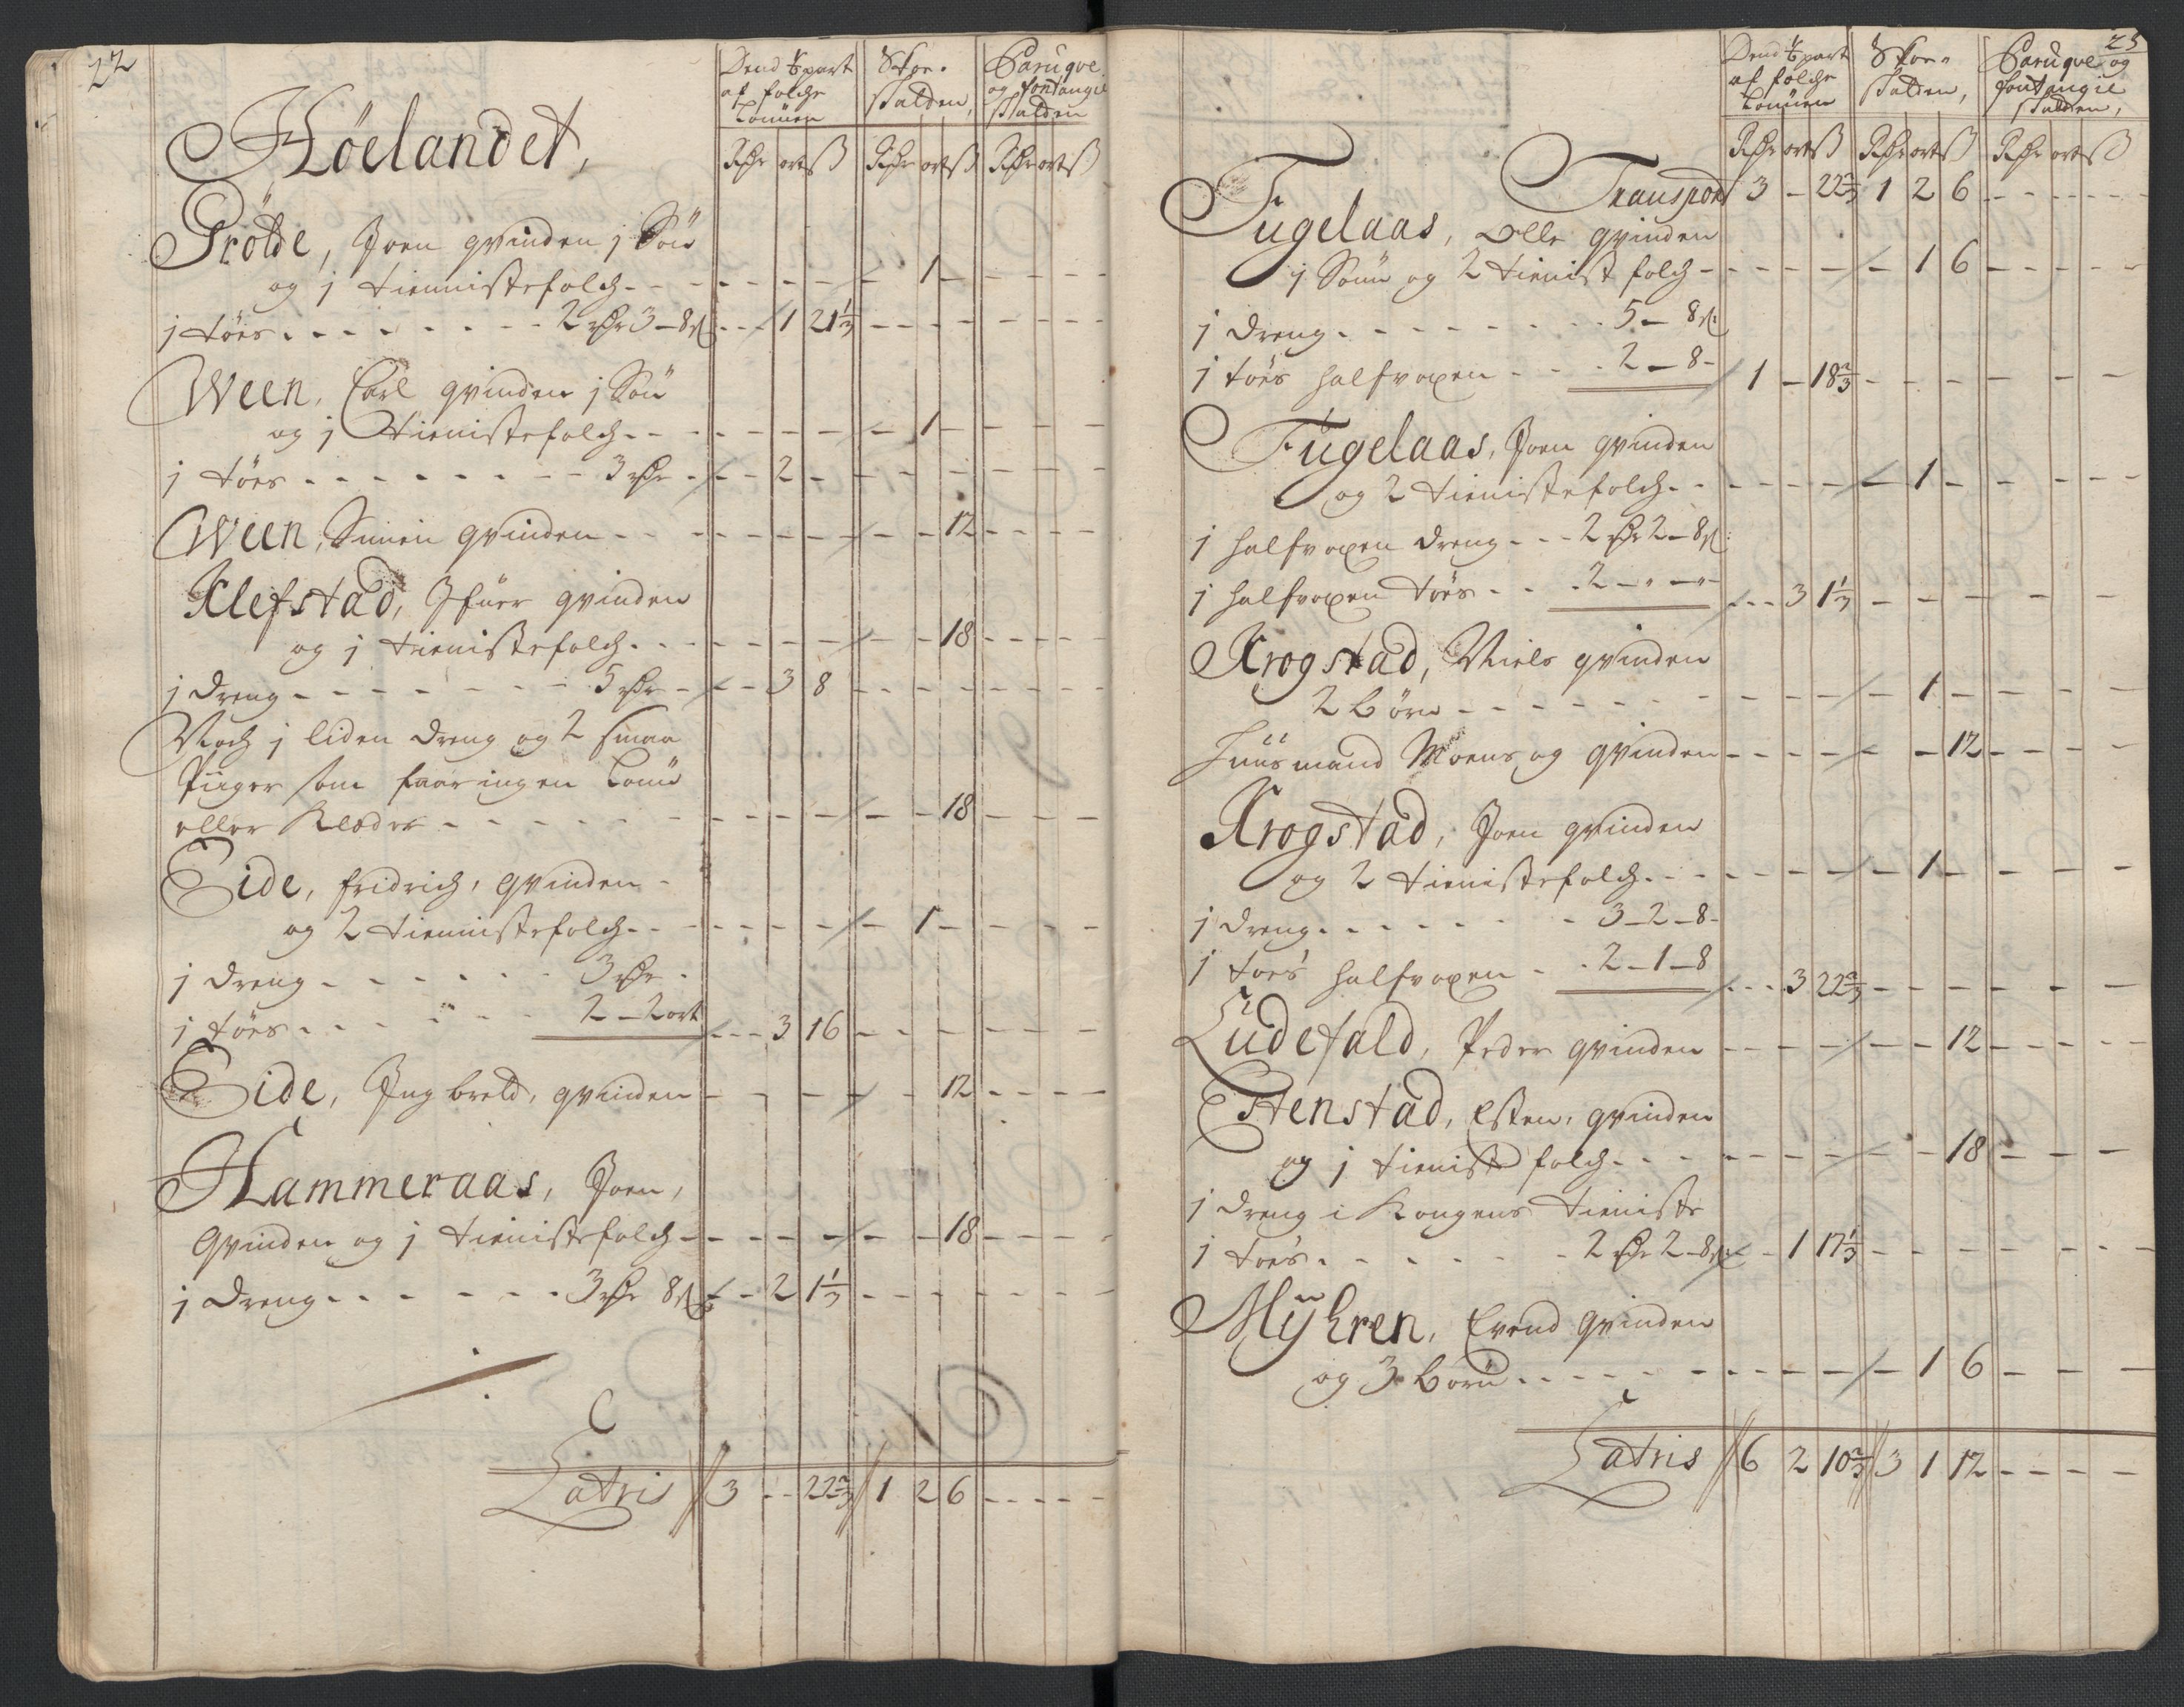 22
Dend 1/6 part af folche Lönnen | Skoe skatten, | Paruqve og fontangie skatten
Rdr ort ß | Rdr ort ß | Rdr ort ß
Höelandet,
Grötte, Joen qvinden j Sön
og j tiennistefolch - - - 1 -
j töes - - - 2 rdr 3 - 8 ß - - 1 21 1/3
Ween, Carl qvinden j Sön
og j tienistefolch - - - 1 -
j töes - - - 3 rdr - - 2 -
Ween, Simen qvinden - - - 12
Klefstad, Ifuer qvinden
og j tienistefolch - - - 18
j dreng - - - 5 rdr - - 3 8
Noch j liden dreng og 2 smaa
Piiger som faar ingen Lönn
eller Klæder - - - 18
Eide, fridrich, qvinden
og 2 tiennistefolch - - - 1 -
j dreng - - - 3 rdr -
j töes - - - 2 - 2 ort - - 3 16
Eide, Ingbret, qvinden - - - 12
Hammeraas, Joen,
Qvinden og j tienistefolch - - - 18
j dreng - - - 3 rdr 8 ß - - 2 1 1/3
Latris 3 - 22 2/3 1 2 6 - - -
23
Dend 1/6 part af folche Lönnen | Skoe skatten, | Paruqve og fontangie skatten,
Rdr ort ß | Rdr ort ß | Rdr ort ß
Transport 3 - 22 2/3 1 2 6 - - -
Fugelaas, Olle qvinden
j Sönn og 2 tienist folch - - - 1 6
j dreng - - - 5 - 8 ß
j töes halfvoxen - - - 2 - 8 - 1 - 18 2/3
Fugelaas, Joen qvinden
og 2 tienistefolch - - - 1 -
j halfvoxen dreng - - - 2 rdr 2 - 8 ß
j halfvoxen töes - - - 2 - " - " - - - 3 1 1/3
Krogstad, Niels qvinden
2 börn - - - 1 -
Huusmand Moens og qvinden - - - 12
Krogstad, Joen qvinden
og 2 tienistefolch - - - 1 -
j dreng - - - 3 - 2 - 8 -
j töes halfvoxen - - - 2 - 1 - 8 - - 3 22 2/3
Ludefald, Peder qvinden - - - 12
Estenstad, Esten, qvinden
og j tieniste folch - - - 18
j dreng i Kongens tieniste
j töes - - - 2 rdr 2 - 8 ß - - 1 17 1/3
Myhren, Evend qvinden
og 3 börn - - - 1 6
Latris 6 2 10 2/3 3 1 12 - - -